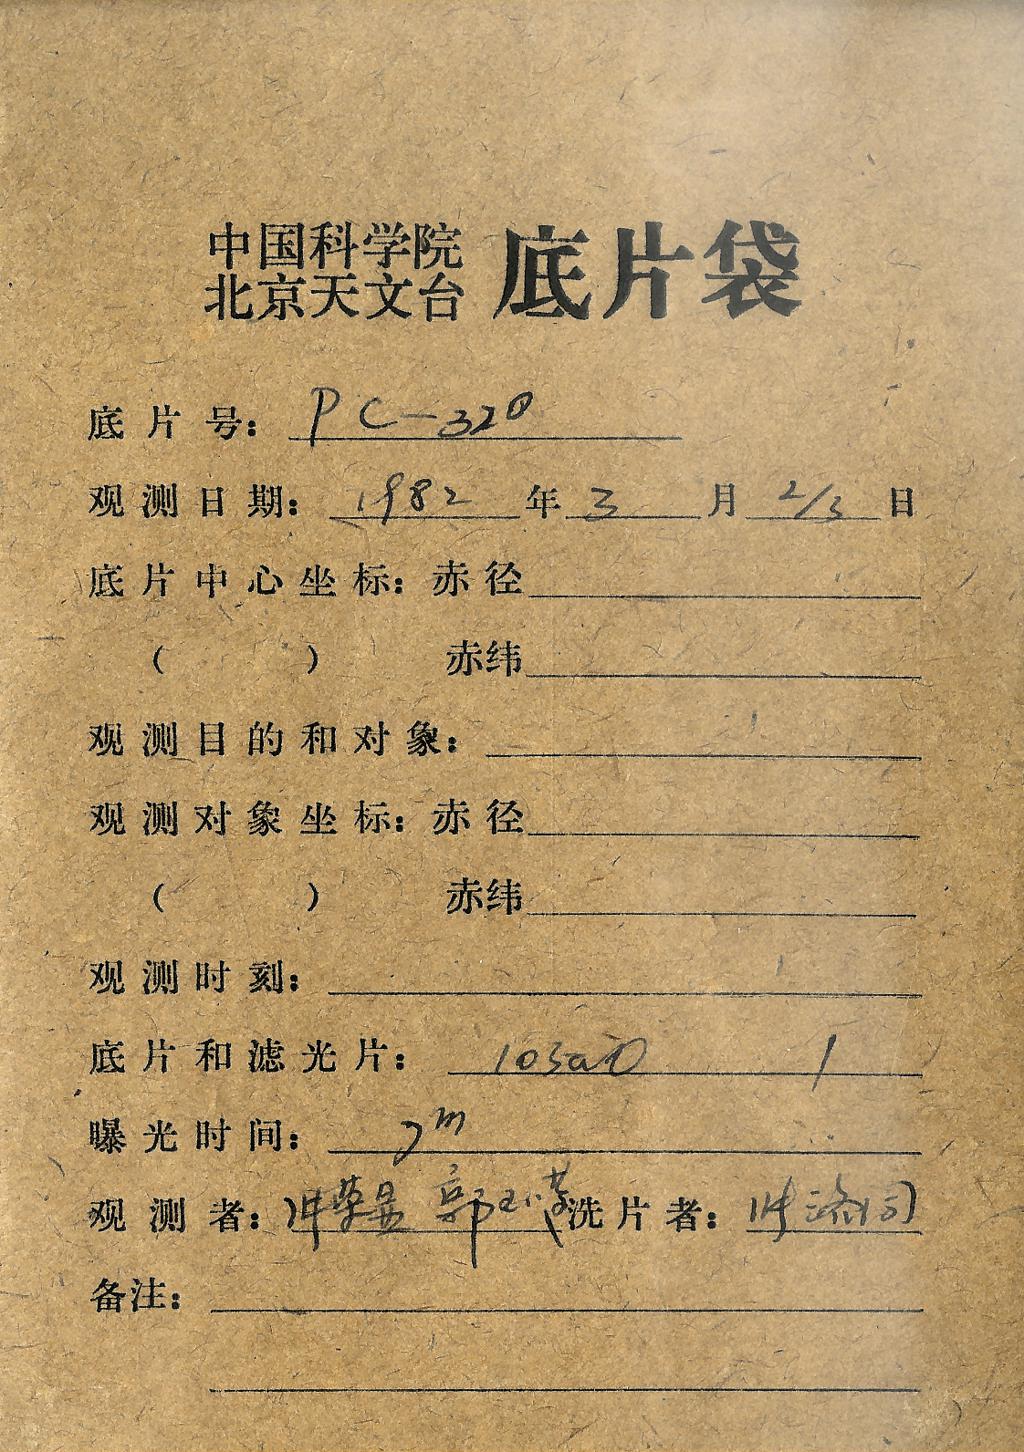 中国科学院
北京天文台 底片袋
底片号: PC-320
观测日期: 1982 年 3 月 2/3 日
底片中心坐标: 赤径
( ) 赤纬
观测目的和对象:
观测对象坐标: 赤径
( ) 赤纬
观测时刻:
底片和滤光片: 103aO 1
曝光时间: 7m
观测者: 洗片者:
备注: